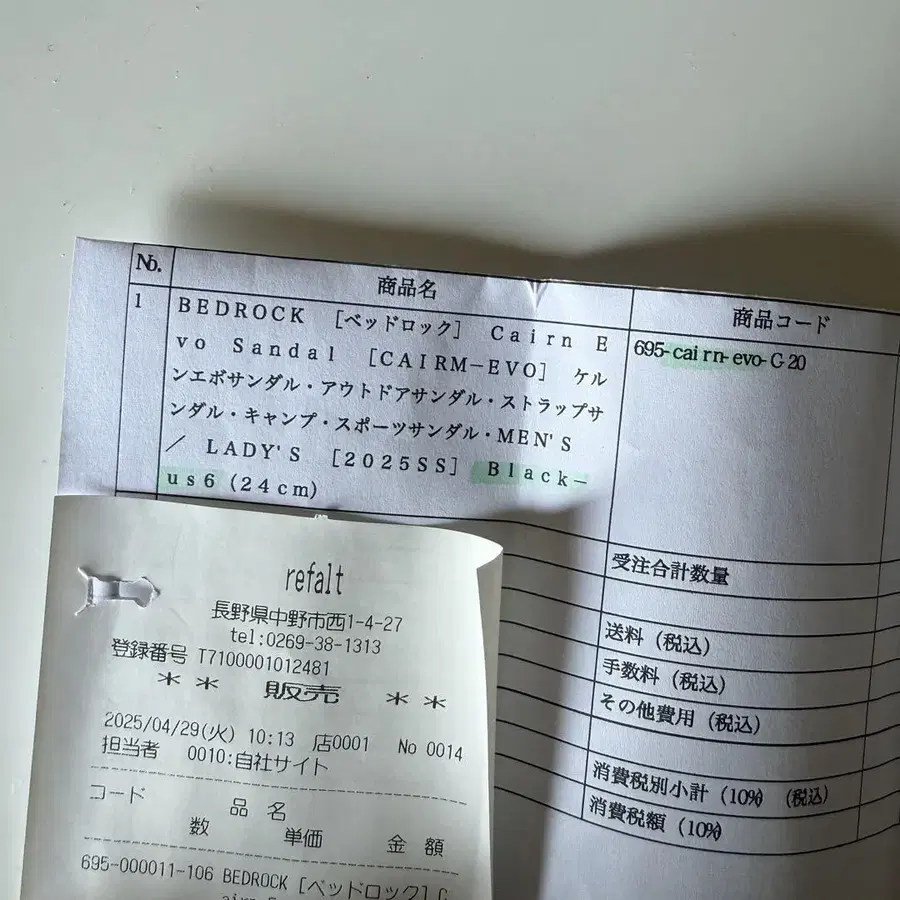 No.
商品名
商品コード
1
BEDROCK ［ベッドロック］ Cairn E
vo Sandal ［CAIRM−EVO］ ケル
ンエボサンダル・アウトドアサンダル・ストラップサ
ンダル・キャンプ・スポーツサンダル・MEN'S
／ LADY'S ［2025SS］ Black−
us6（24cm）
695-cairn-evo-G20
受注合計数量
送料（税込）
手数料（税込）
その他費用（税込）
消費税別小計（10%）（税込）
消費税額（10%）
refalt
長野県中野市西1-4-27
tel:0269-38-1313
登録番号 T7100001012481
＊＊ 販売 ＊＊
2025/04/29(火) 10:13 店0001 No 0014
担当者 0010:自社サイト
コード 品名
数 単価 金額
695-000011-106 BEDROCK [ベッドロック] C